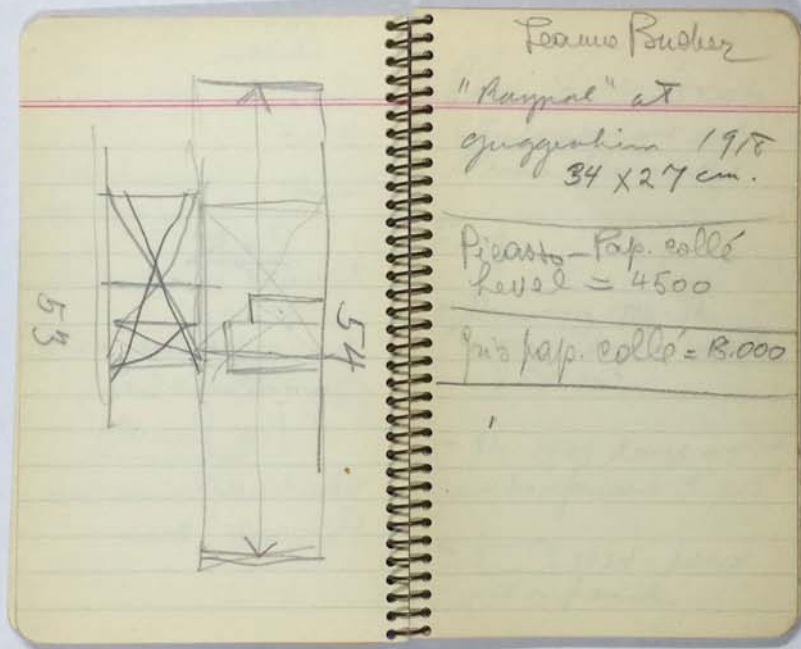 53
54
Jeanne Bucher
"Raynal" at
Guggenheim 1918
34 x 27 cm.
Picasso – Pap. collé
Level = 4500
Gris pap. collé = 13.000